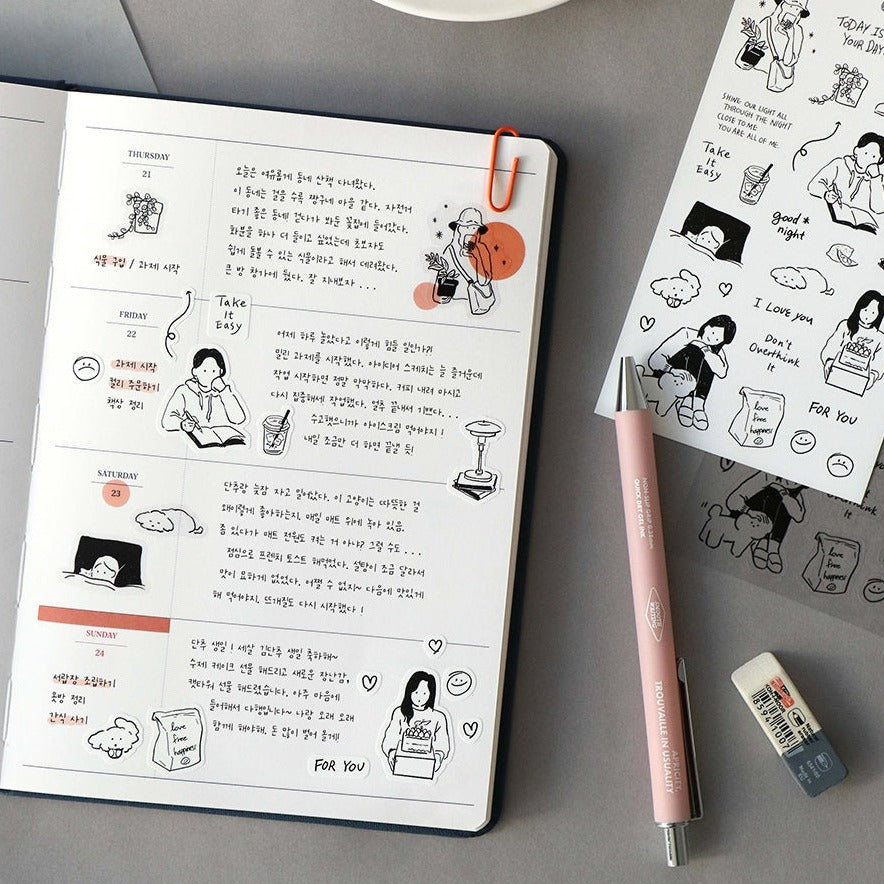 THURSDAY
21
식물 구입 / 과제 시작
오늘은 여유롭게 동네 산책 다녀왔다.
이 동네는 걸을 수록 짱구네 마을 같다. 자전거
타기 좋은 동네! 걷다가 봐둔 꽃집에 들어갔다.
화분을 하나 더 들이고 싶었는데 초보자도
쉽게 돌볼 수 있는 식물이라고 해서 데려왔다.
큰 방 창가에 뒀다. 잘 지내보자 ...
FRIDAY
22
Take
It
Easy
과제 시작
컬러 주문하기
책상 정리
어제 하루 놀았다고 이렇게 힘들 일인가?!
밀린 과제를 시작했다. 아이디어 스케치는 늘 즐거운데
작업 시작하면 정말 막막하다. 커피 내려 마시고
다시 집중해서 작업했다. 얼추 끝내서 기쁘다...
수고했으니까 아이스크림 먹어야지!
내일 조금만 더 하면 끝낼 듯!
SATURDAY
23
단추랑 늦잠 자고 일어났다. 이 고양이는 따뜻한 걸
왜이렇게 좋아하는지. 매일 매트 위에 녹아 있음.
좀 있다가 매트 전원도 켜는 거 아냐? 그럴 수도...
점심으로 프렌치 토스트 해먹었다. 설탕이 조금 달라서
맛이 묘하게 없었다. 어쩔 수 없지~ 다음에 맛있게
해 먹어야지. 뜨개질도 다시 시작했다!
SUNDAY
24
서랍장 조립하기
옷방 정리
간식 사기
단추 생일! 세상 김단추 생일 축하해~
수제 케이크 선물 해드리고 새로운 장난감,
캣타워 선물 해드렸습니다. 아주 마음에
들어해서 다행입니다~ 나랑 오래 오래
함께 해야해. 돈 많이 벌어 올게!
love
free
happiness
FOR YOU
TODAY IS
YOUR DAY
SHINE OUR LIGHT ALL
THROUGH THE NIGHT
CLOSE TO ME
YOU ARE ALL OF ME
Take
It
Easy
good*
night
I LOVE YOU
Don't
Overthink
It
love
free
happiness
FOR YOU
Overthink
It
love
free
happiness
NON-SLIP GRIP 0.38mm
QUICK DRY GEL INK
TROUVAILLE IN USUALITY
APRICITY.